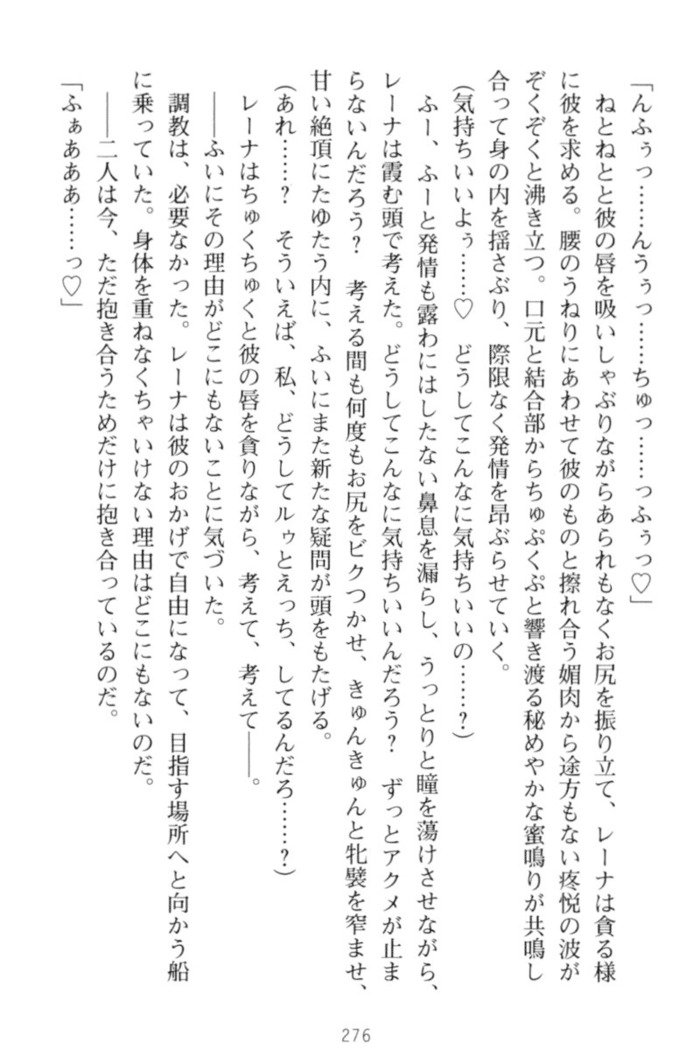 「んふぅっ……んうぅっ……ちゅっ……っふぅっ♡」
ねとねとと彼の唇を吸いしゃぶりながらあられもなくお尻を振り立て、レーナは貪る様
に彼を求める。腰のうねりにあわせて彼のものと擦れ合う媚肉から途方もない疼悦の波が
ぞくぞくと沸き立つ。口元と結合部からちゅぷくぷと響き渡る秘めやかな蜜鳴りが共鳴し
合って身の内を揺さぶり、際限なく発情を昂ぶらせていく。
(気持ちいいよぅ……♡　どうしてこんなに気持ちいいの……?)
ふー、ふーと発情も露わにはしたない鼻息を漏らし、うっとりと瞳を蕩けさせながら、
レーナは霞む頭で考えた。どうしてこんなに気持ちいいんだろう?　ずっとアクメが止ま
らないんだろう?　考える間も何度もお尻をビクつかせ、きゅんきゅんと牝襞を窄ませ、
甘い絶頂にたゆたう内に、ふいにまた新たな疑問が頭をもたげる。
(あれ……?　そういえば、私、どうしてルゥとえっち、してるんだろ……?)
レーナはちゅくちゅくと彼の唇を貪りながら、考えて、考えて――。
――ふいにその理由がどこにもないことに気づいた。
調教は、必要なかった。レーナは彼のおかげで自由になって、目指す場所へと向かう船
に乗っていた。身体を重ねなくちゃいけない理由はどこにもないのだ。
――二人は今、ただ抱き合うためだけに抱き合っているのだ。
「ふぁあああ……っ♡」
276